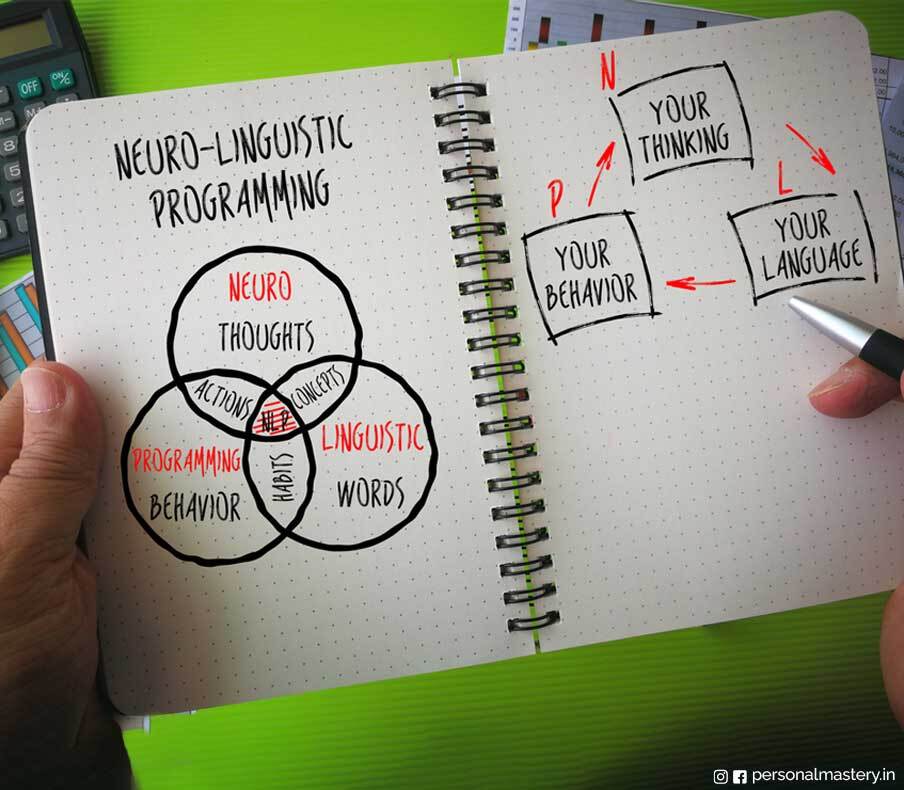 OFF
ON/C
8
5
2
NEURO-LINGUISTIC
PROGRAMMING
NEURO
THOUGHTS
ACTIONS
CONCEPTS
NLP
PROGRAMMING
BEHAVIOR
HABITS
LINGUISTIC
WORDS
N
YOUR
THINKING
P
L
YOUR
BEHAVIOR
YOUR
LANGUAGE
personalmastery.in